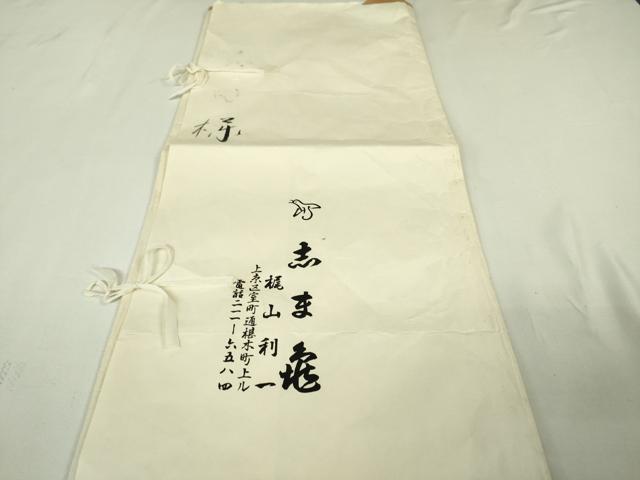 様
志ま亀
梶山利一
上京区室町通椹木町上ル
電話二一一ー六五八四